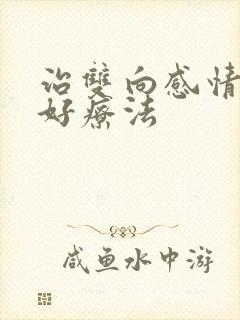 治雙向感情
好療法
咸鱼水中游